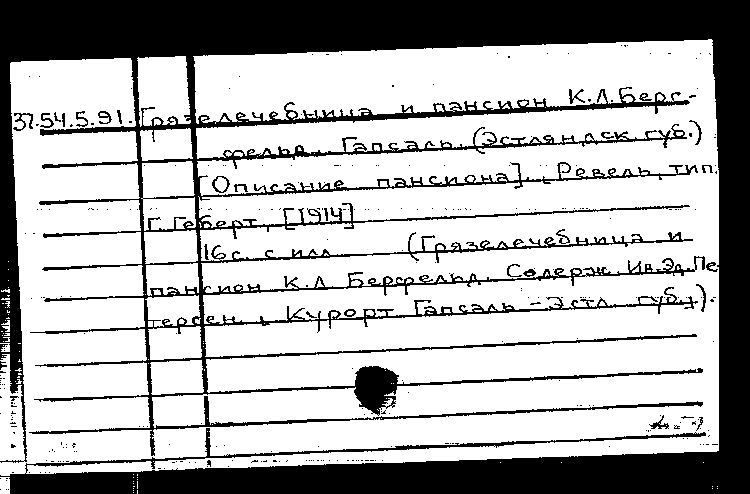 37.54.5.91. Грязелечебница и пансион К.Л.Берс-
фельд. Гапсаль. (Эстляндск. губ.)
[Описание пансиона]. Ревель, тип.
Г. Геберт, [1914]
16с. с илл. (Грязелечебница и
пансион К.Л Берсфельд. Содерж. Ин.Эд.Пе
терсен. Курорт Гапсаль - Эстл. губ.).